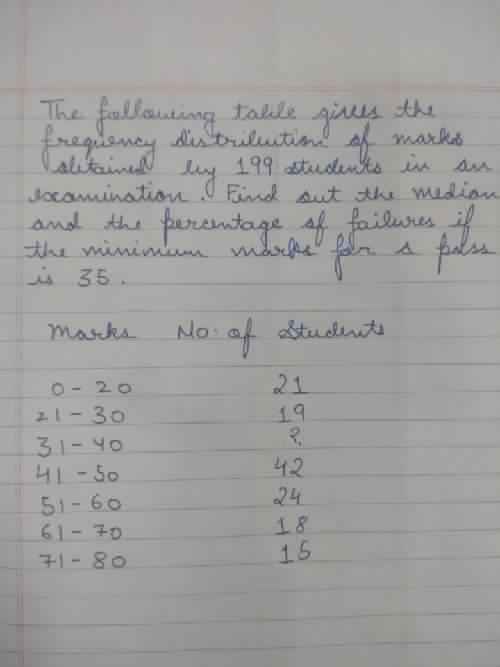 The following table gives the
frequency distribution of marks
obtained by 199 students in an
examination. Find out the median
and the percentage of failures if
the minimum marks for a pass
is 35.
Marks No. of Students
0-20 21
21-30 19
31-40 ?
41-50 42
51-60 24
61-70 18
71-80 15